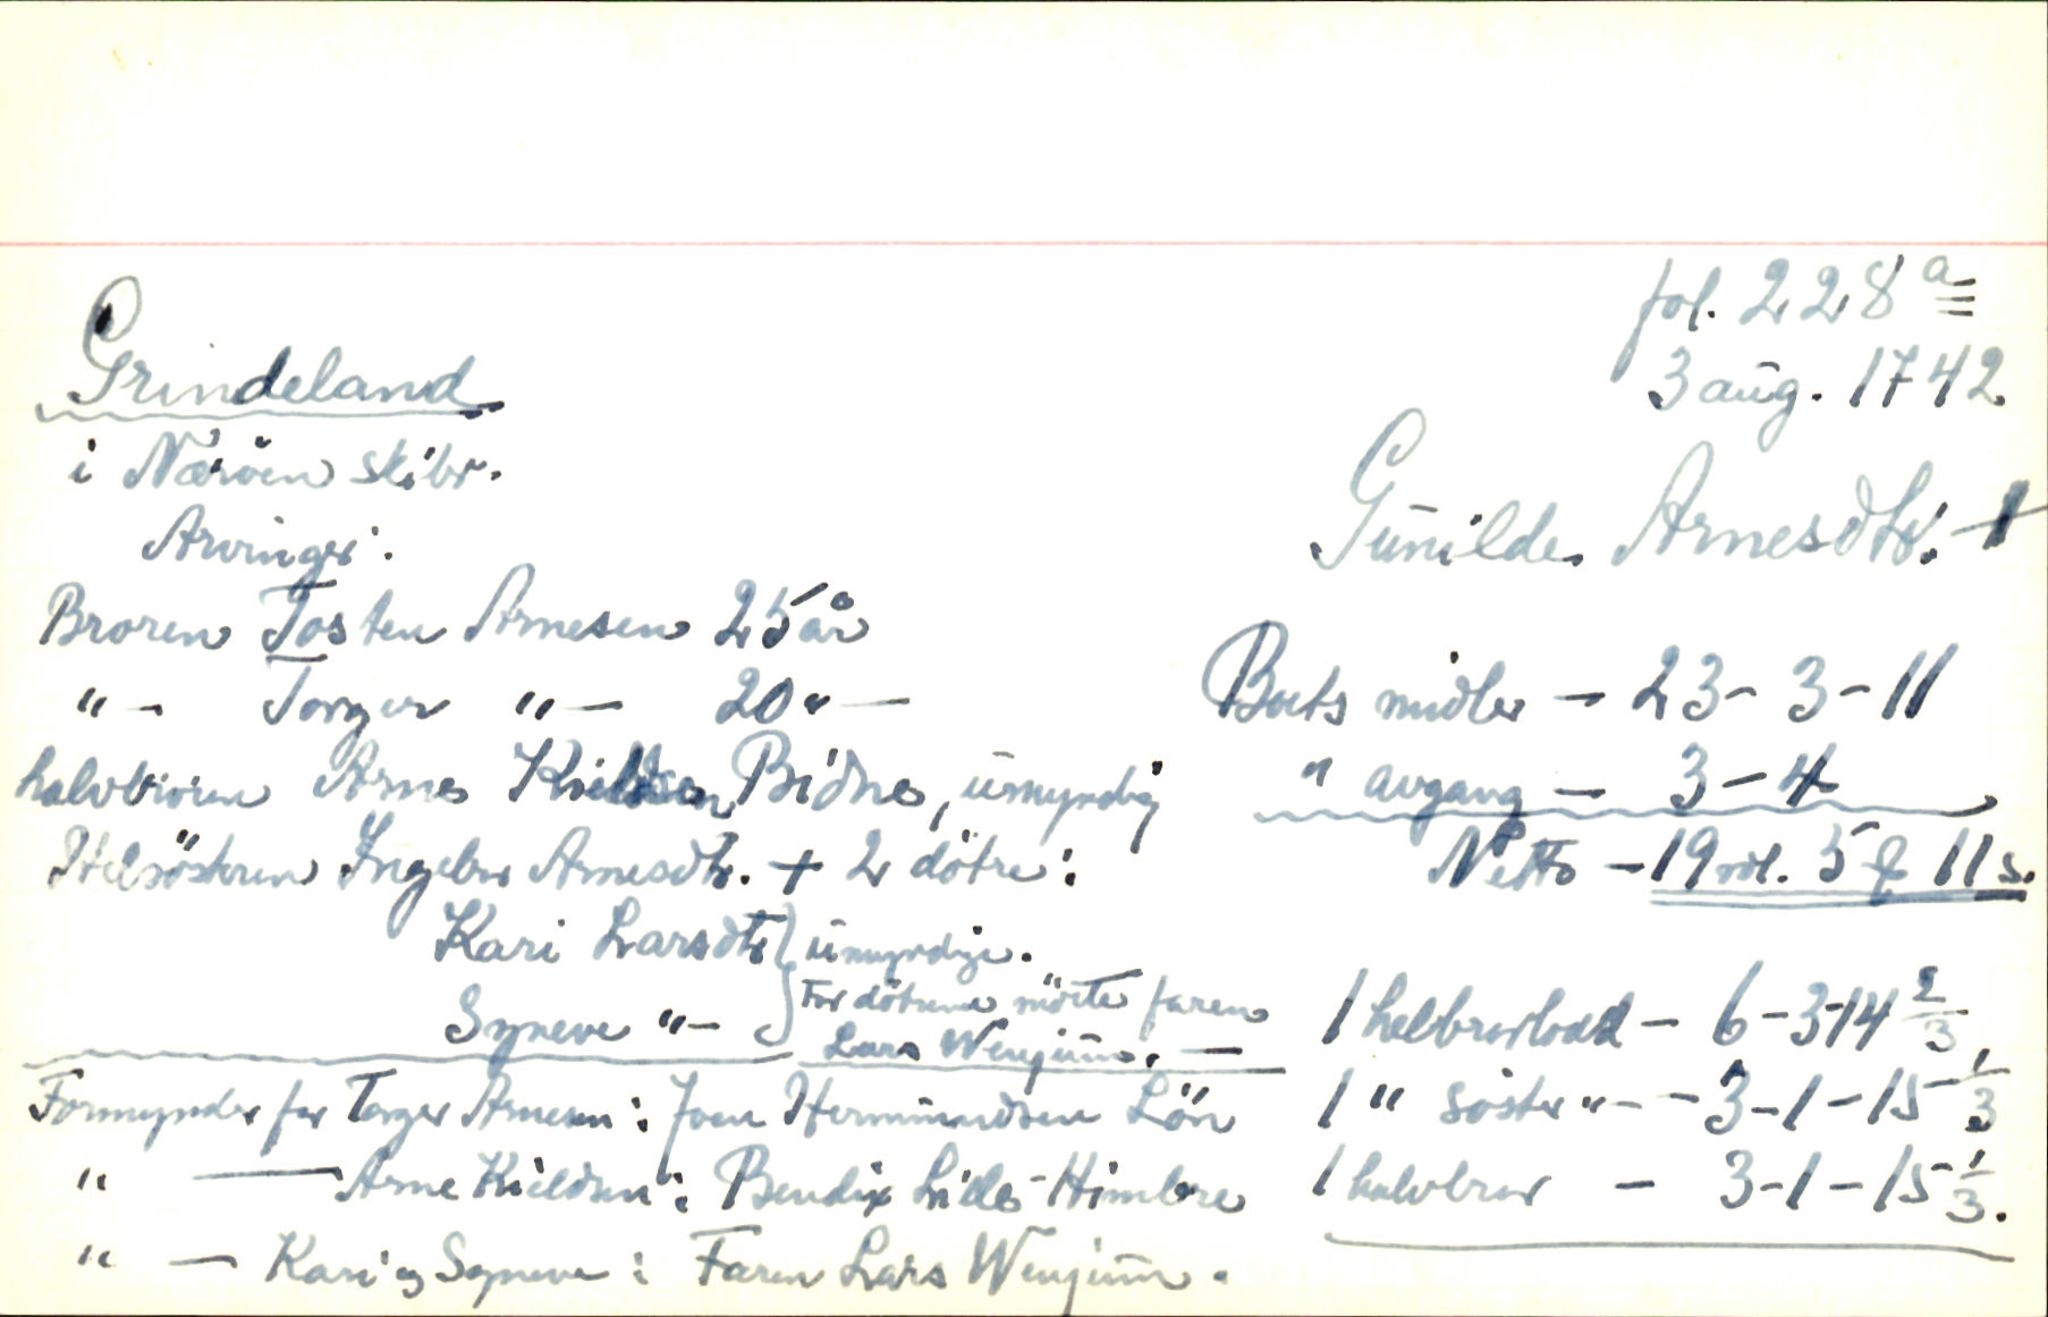 fol. 228 a
3 aug. 1742
Grindeland
i Nærøen skibr.
Gunilde Arnesdtr. +
Arvinger:
Broren Tosten Arnesen 25 år
" - Torger " - 20 " -
halvbroren Arne Kieldsen Bidne, umyndig
Helsösteren Ingebor Arnesdtr. + 2 dötre:
Kari Larsdtr } umyndige.
Syneve " - } For døtrene mötte faren
Lars Wenjum. -
Formynder for Torger Arnesen: Joen Hermundsen Lön
" - Arne Kieldsen: Bendix Lille-Himbre
" - Kari og Syneve: Faren Lars Wenjum.
Boets midler - 23 - 3 - 11
" avgang - 3 - 4
Netto - 19 rdl. 5 ƒ 11 s.
1 helbrorlodd - 6 - 3 - 14 2/3
1 " söster " - - 3 - 1 - 15 1/3
1 halvbror - 3 - 1 - 15 1/3.